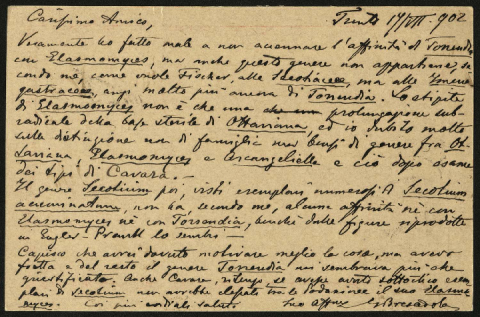 Carissimo Amico, Trento 17/VII. 902
Veramente ho fatto male a non accennare l'affinità di Torrendia
con Elasmomyces, ma anche questo genere non appartiene, se-
condo me, come vuole Fischer, alle Secotiaceae, ma alle Hymeno-
gastraceae, anzi molto più ancora di Torrendia. Lo stipite
di Elasmomyces non è che una che un prolungazione sub-
radicale della base sterile di Octaviana, ed io dubito molto
sulla distinzione non di famiglia ma bensì di genere fra Oc-
taviana, Elasmomyces e Arcangeliella e ciò dopo esame
dei tipi di Cavara. —
Il genere Secotium poi, visti esemplari numerosi di Secotium
acuminatum, non ha, secondo me, alcuna affinità nè con
Elasmomyces nè con Torrendia, benchè dalle figure riprodotte
in Engler-Prantl lo sembri.
Capisco che avrei dovuto motivare meglio la cosa, ma avevo
fretta e del resto il genere Torrendia mi sembrava più che
giustificato. Anche Cavara, ritengo, se avesse avuto sottocchio esem-
plari di Secotium non avrebbe il suo Elasmo-
myces. Coi più cordiali saluti Suo affmo G Bresadola